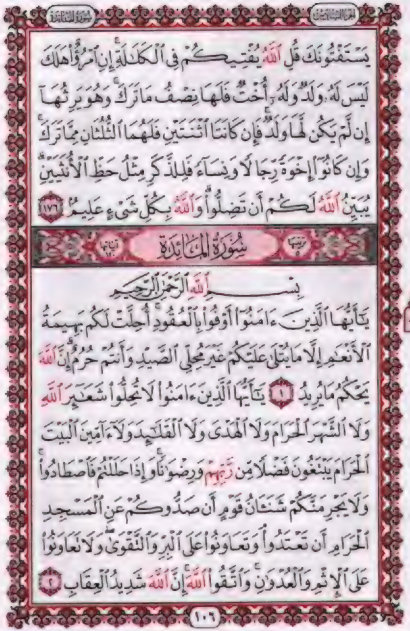 سُورَةُ المَائِدَةِ
الجُزْءُ السَّادِسُ
يَسْتَفْتُونَكَ قُلِ اللَّهُ يُفْتِيكُمْ فِى الْكَلَالَةِ إِنِ امْرُؤٌا۟ هَلَكَ
لَيْسَ لَهُۥ وَلَدٌ وَلَهُۥٓ أُخْتٌ فَلَهَا نِصْفُ مَا تَرَكَ وَهُوَ يَرِثُهَآ
إِن لَّمْ يَكُن لَّهَا وَلَدٌ فَإِن كَانَتَا اثْنَتَيْنِ فَلَهُمَا الثُّلُثَانِ مِمَّا تَرَكَ
وَإِن كَانُوٓا۟ إِخْوَةً رِّجَالًا وَنِسَآءً فَلِلذَّكَرِ مِثْلُ حَظِّ الْأُنثَيَيْنِ
يُبَيِّنُ اللَّهُ لَكُمْ أَن تَضِلُّوا۟ وَاللَّهُ بِكُلِّ شَىْءٍ عَلِيمٌۢ ١٧٦
سُورَةُ المَائِدَةِ
بِسْمِ اللَّهِ الرَّحْمَٰنِ الرَّحِيمِ
يَٰٓأَيُّهَا الَّذِينَ ءَامَنُوٓا۟ أَوْفُوا۟ بِالْعُقُودِ أُحِلَّتْ لَكُم بَهِيمَةُ
الْأَنْعَٰمِ إِلَّا مَا يُتْلَىٰ عَلَيْكُمْ غَيْرَ مُحِلِّى الصَّيْدِ وَأَنتُمْ حُرُمٌ إِنَّ اللَّهَ
يَحْكُمُ مَا يُرِيدُ ١ يَٰٓأَيُّهَا الَّذِينَ ءَامَنُوا۟ لَا تُحِلُّوا۟ شَعَٰٓئِرَ اللَّهِ
وَلَا الشَّهْرَ الْحَرَامَ وَلَا الْهَدْىَ وَلَا الْقَلَٰٓئِدَ وَلَآ ءَآمِّينَ الْبَيْتَ
الْحَرَامَ يَبْتَغُونَ فَضْلًا مِّن رَّبِّهِمْ وَرِضْوَٰنًا وَإِذَا حَلَلْتُمْ فَاصْطَادُوا۟
وَلَا يَجْرِمَنَّكُمْ شَنَـَٔانُ قَوْمٍ أَن صَدُّوكُمْ عَنِ الْمَسْجِدِ
الْحَرَامِ أَن تَعْتَدُوا۟ وَتَعَاوَنُوا۟ عَلَى الْبِرِّ وَالتَّقْوَىٰ وَلَا تَعَاوَنُوا۟
عَلَى الْإِثْمِ وَالْعُدْوَٰنِ وَاتَّقُوا۟ اللَّهَ إِنَّ اللَّهَ شَدِيدُ الْعِقَابِ ٢
١٠٦